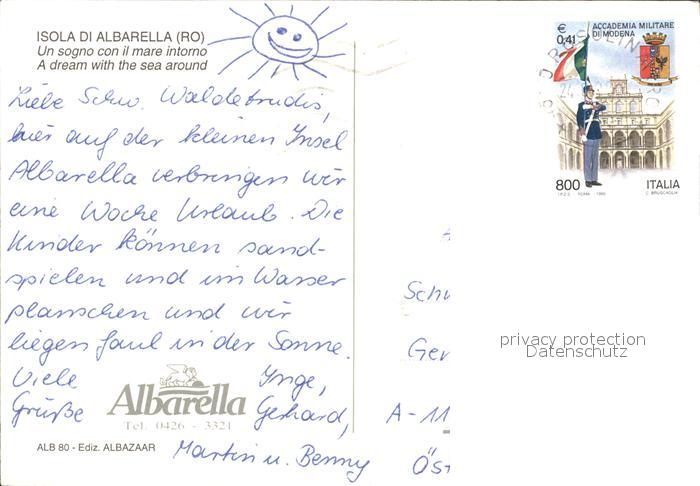 ISOLA DI ALBARELLA (RO)
Un sogno con il mare intorno
A dream with the sea around
Liebe Schw. Waldetrudis,
hier auf der kleinen Insel
Albarella verbringen wir
eine Woche Urlaub. Die
Kinder können sand-
spielen und im Wasser
planschen und wir
liegen faul in der Sonne.
Viele Inge,
Grüße Gerhard,
Martin u. Benny
Albarella
Tel. 0426 - 3321
ALB 80 - Ediz. ALBAZAAR
€ 0,41
ACCADEMIA MILITARE
DI MODENA
800 ITALIA
I.P.Z.S. ROMA 1999 C. BRUSCAGLIA
Schw
Ger
A-11
Öst
privacy protection
Datenschutz